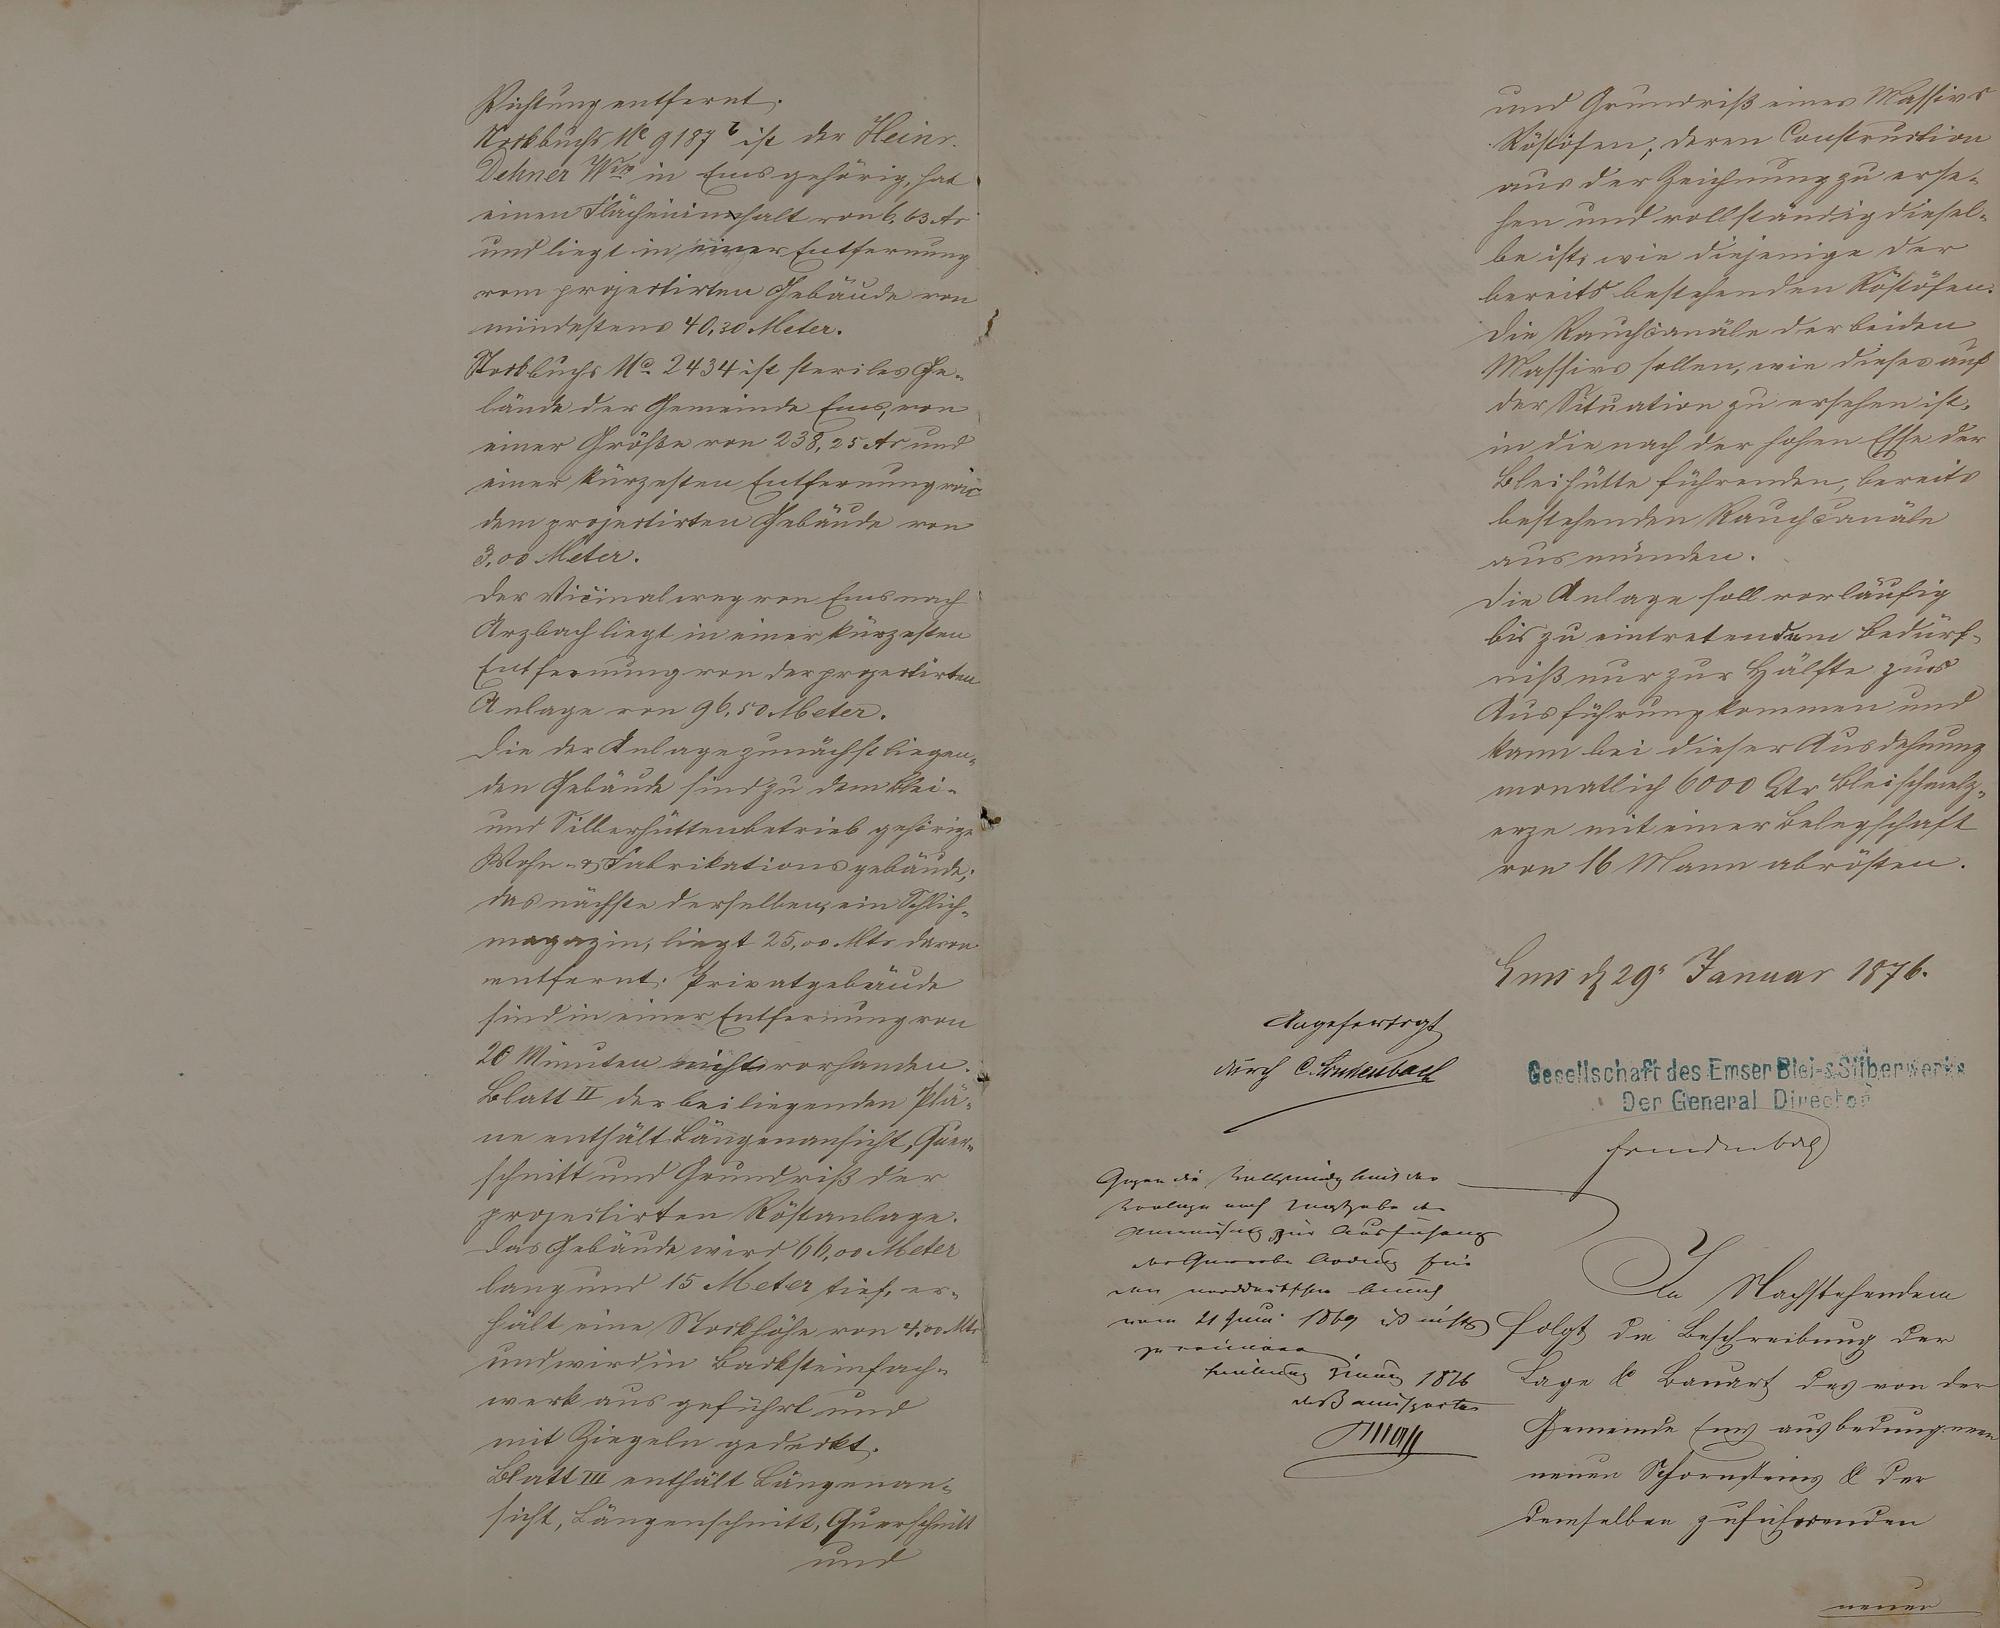 Richtung entfernt.
Stockbuchs No 9187 b ist der Heinr.
Dehner Wwe in Ems gehörig, hat
einen Flächeninhalt von 6,63 Ar
und liegt in einer Entfernung
vom projectirten Gebäude von
mindestens 40,30 Meter.
Stockbuchs No. 2434 ist steriles Ge-
lände der Gemeinde Ems, von
einer Größe von 238,25 Ar und
einer kürzesten Entfernung von
dem projectirten Gebäude von
3,00 Meter.
Der Vicinalweg von Ems nach
Arzbach liegt in einer kürzesten
Entfernung von der projectirten
Anlage von 96,50 Meter.
Die der Anlage zunächst liegen-
den Gebäude sind zu dem Blei-
und Silberhüttenbetrieb gehörige
Wohn- & Fabrikationsgebäude;
das nächste derselben, ein Schlich-
magazin, liegt 25,00 Mtr davon
entfernt. Privatgebäude
sind in einer Entfernung von
20 Minuten nicht vorhanden.
Blatt II der beiliegenden Plä-
ne enthält Längenansicht, Quer-
schnitt und Grundriß der
projectirten Röstanlage.
Das Gebäude wird 66,00 Meter
lang und 15 Meter tief, er-
hält eine Stockhöhe von 4,00 Mtr
und wird in Backsteinfach-
werk ausgeführt und
mit Ziegeln gedeckt.
Blatt III enthält Längenan-
sicht, Längenschnitt, Querschnitt
und
und Grundriß eines Massivs
Röstöfen, deren Construction
aus der Zeichnung zu erse-
hen und vollständig diesel-
be ist, wie diejenige der
bereits bestehenden Röstöfen.
Die Rauchcanäle der beiden
Massivs sollen, wie dieses auf
der Situation zu ersehen ist,
in die nach der hohen Esse der
Bleihütte führenden, bereits
bestehenden Rauchcanäle
ausmünden.
Die Anlage soll vorläufig
bis zu eintretendem Bedürf-
niß nur zur Hälfte zur
Ausführung kommen und
kann bei dieser Ausdehnung
monatlich 6000 Ctr Bleischmelz-
erze mit einer Belegschaft
von 16 Mann abrösten.
Ems d 29. Januar 1876.
Angefertigt
durch C. Linkenbach
Gesellschaft des Emser Blei- & Silberwerks
Der General Director
Gegen die Vollständigkeit der
Vorlage nach Maßgabe der
Anweisung zur Ausführung
der Gewerbe Ordnung für
den norddeutschen Bund
vom 21 Juni 1869 ist nichts
zu erinnern
1876
In Nachstehendem
folgt die Beschreibung der
Lage & Bauart des von der
Gemeinde Ems ausbedungenen
neuen Schornsteins & der
demselben zuführenden
neuen